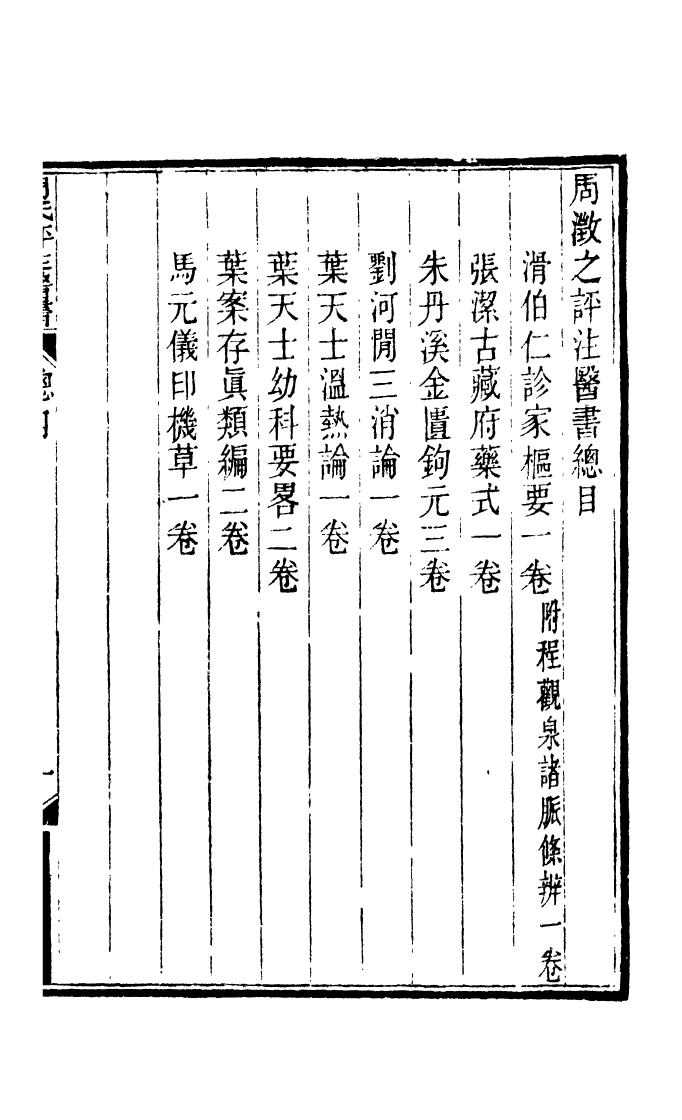 周澂之評注醫書總目
滑伯仁診家樞要一卷附程觀泉諸脈條辨一卷
張潔古藏府藥式一卷
朱丹溪金匱鉤元三卷
劉河閒三消論一卷
葉天士溫熱論一卷
葉天士幼科要畧二卷
葉案存眞類編二卷
馬元儀印機草一卷
總目
一